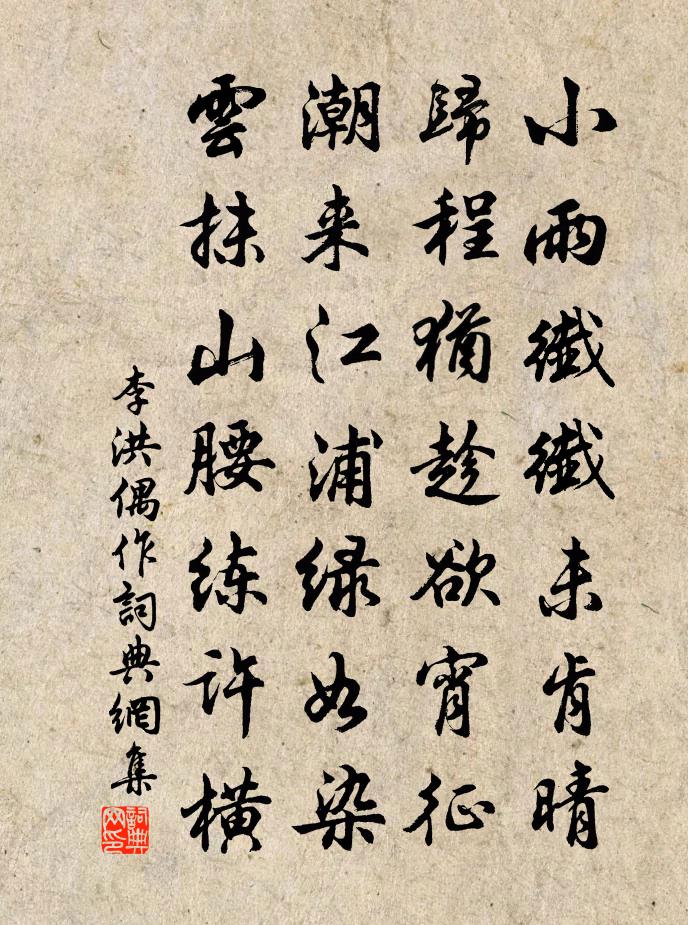 小雨纖纖未肯晴
歸程猶趁欲宵征
潮来江浦緑如染
雲抹山腰練許橫
李洪偶作詞典網集
詞典網印